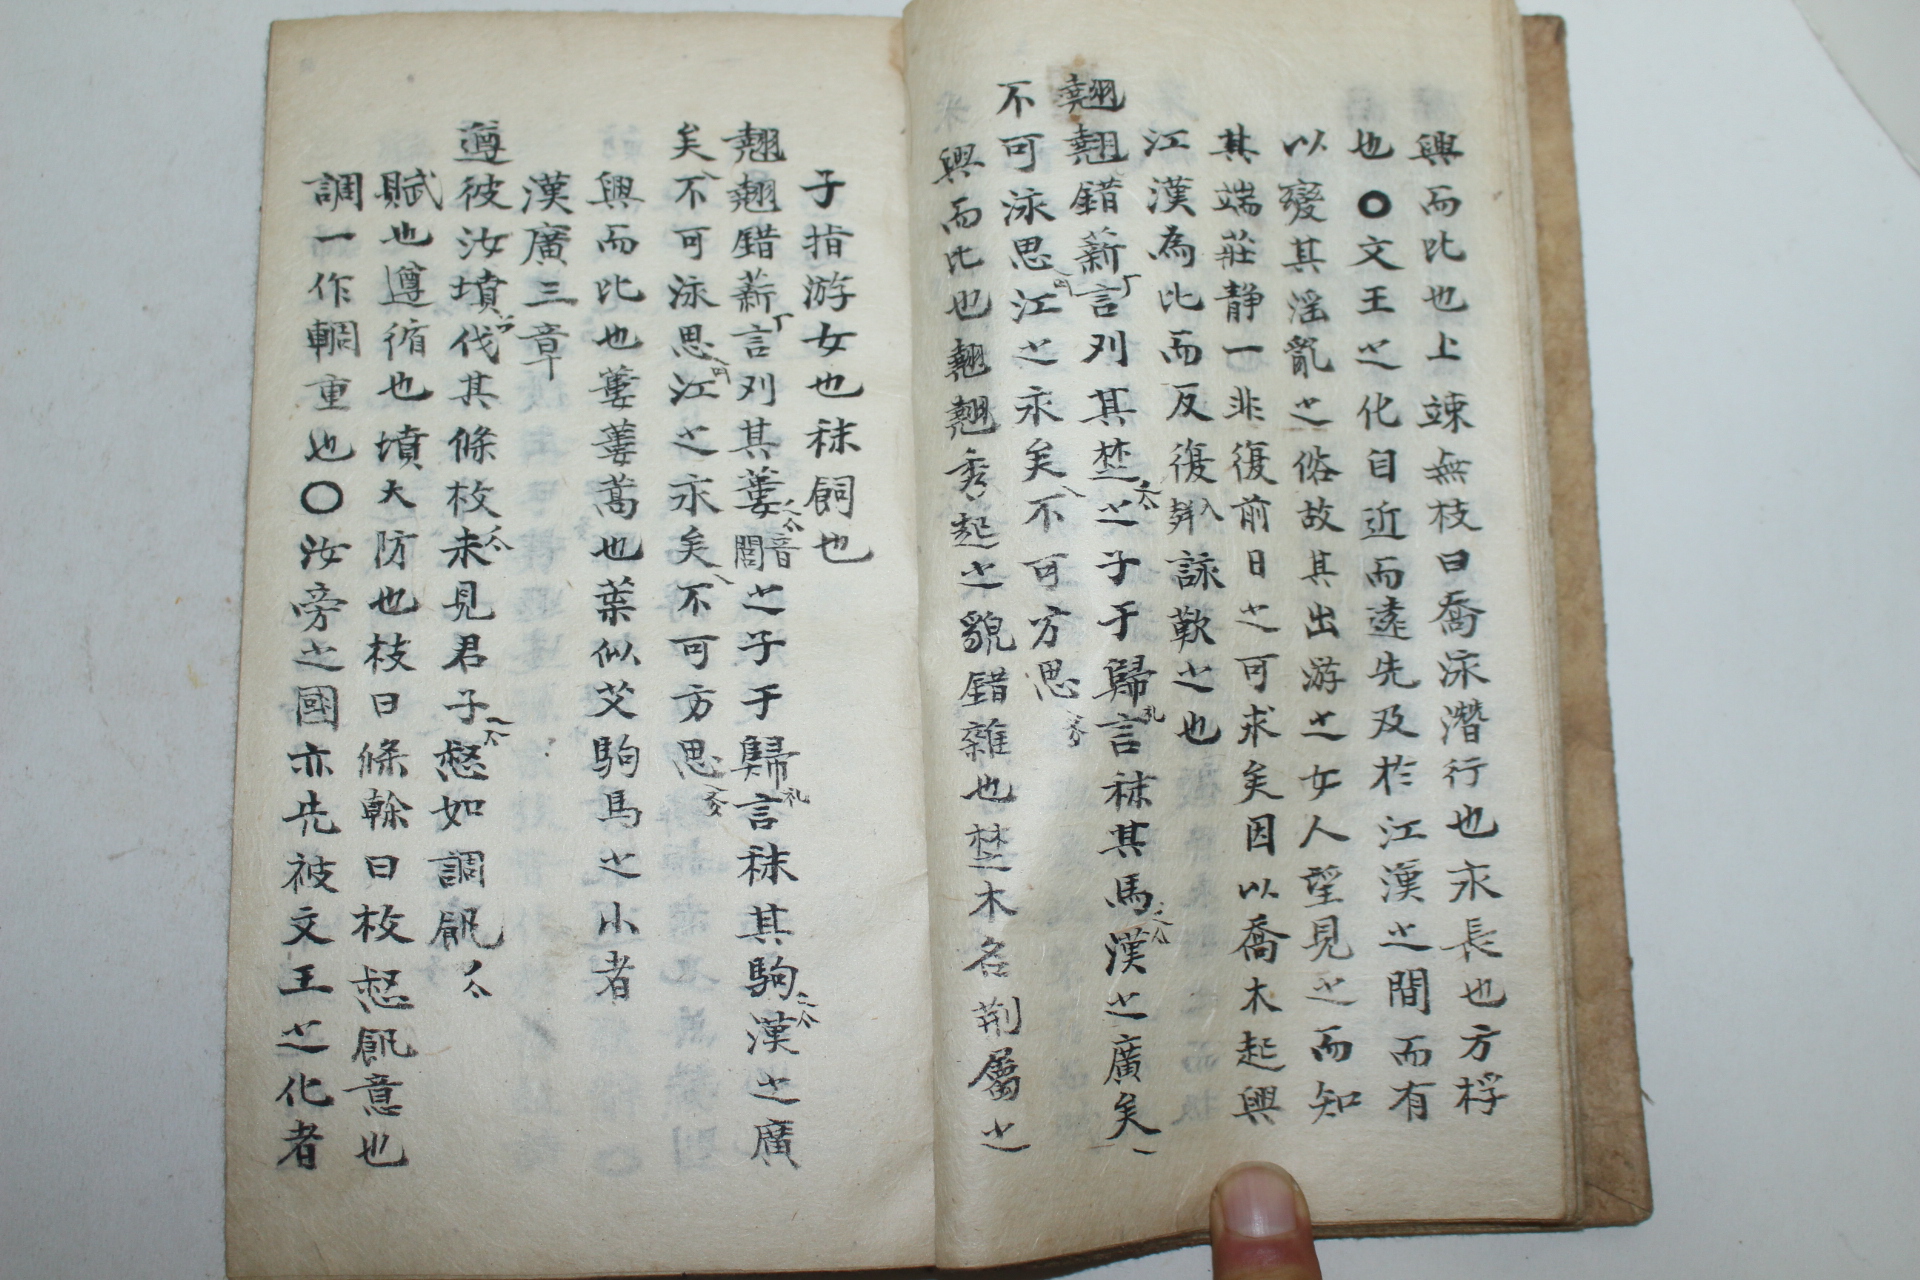 興而比也上竦無枝曰喬泳潛行也永長也方桴
也○文王之化自近而遠先及於江漢之間而有
以變其淫亂之俗故其出游之女人望見之而知
其端莊靜一非復前日之可求矣因以喬木起興
江漢為比而反復詠歎之也
翹翹錯薪言刈其楚之子于歸言秣其馬漢之廣矣
不可泳思江之永矣不可方思
興而比也翹翹秀起之貌錯雜也楚木名荊屬之
子指游女也秣飼也
翹翹錯薪言刈其蔞音閭之子于歸言秣其駒漢之廣
矣不可泳思江之永矣不可方思
興而比也蔞蔞蒿也葉似艾駒馬之小者
漢廣三章
遵彼汝墳伐其條枚未見君子惄如調飢
賦也遵循也墳大防也枝曰條榦曰枚惄飢意也
調一作輖重也○汝旁之國亦先被文王之化者